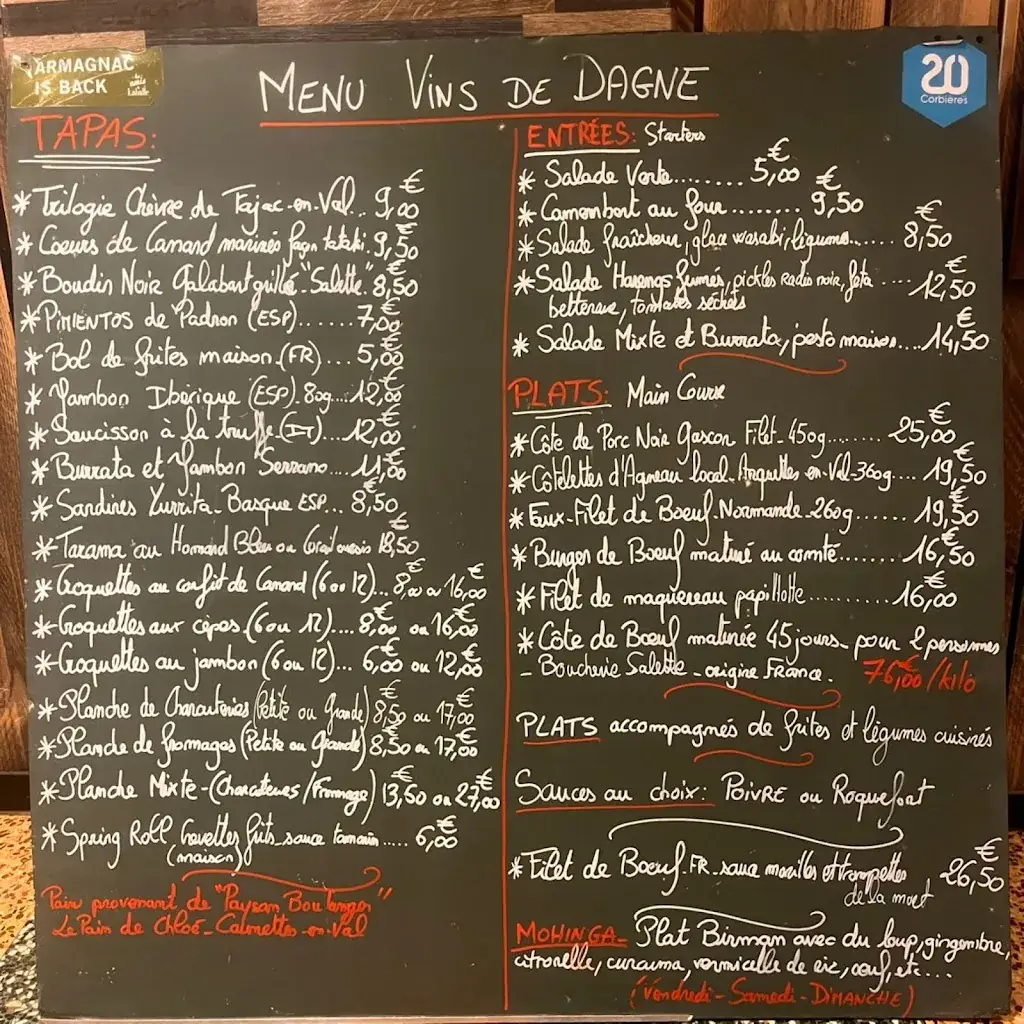 ARMAGNAC
IS BACK
20
Corbières
MENU VINS DE DAGNE
TAPAS:
* Trilogie Chèvre de Fajac-en-Val.. 9,00€
* Coeurs de Canard marinés façon tataki. 9,50€
* Boudin Noir Galabart grillé "Salette". 8,50€
* PIMENTOS de Padron (ESP)...... 7,00€
* Bol de frites maison. (FR)... 5,00€
* Jambon Ibérique (ESP)_80g... 12,00€
* Saucisson à la truffe. (IT)... 12,00€
* Burrata et Jambon Serrano... 11,00€
* Sardines Yurrita_Basque ESP... 8,50€
* Tarama au Homard Bleu ou 18,50€
* Croquettes au confit de Canard (6 ou 12).. 8,00 ou 16,00€
* Croquettes aux cèpes. (6 ou 12).... 8,00€ ou 16,00€
* Croquettes au jambon (6 ou 12)... 6,00€ ou 12,00€
* Planche de Charcuteries (Petite ou Grande) 8,50€ ou 17,00€
* Planche de fromages (Petite ou Grande) 8,50€ ou 17,00€
* Planche Mixte-(Charcuteries/Fromage) 13,50€ ou 27,00€
* Spring Roll Crevettes frits_sauce tamarin..... 6,00€
(maison)
Pain provenant de "Paysan Boulanger"
Le Pain de Chloé_Caunettes-en-Val
ENTRÉES: Starters
* Salade Verte........ 5,00€
* Camembert au four........ 9,50€
* Salade fraîcheur, glace wasabi, légumes..... 8,50€
* Salade Harengs fumés, pickles Radis noir, feta .... 12,50€
betterave, tomates séchées
* Salade Mixte et Burrata, pesto maison.... 14,50€
PLATS: Main Course
* Côte de Porc Noir Gascon Filet_450g....... 25,00€
* Côtelettes d'Agneau local_Arquettes-en-Val-360g.... 19,50€
* Faux-Filet de Boeuf_Normande_260g...... 19,50€
* Burger de Boeuf maturé au comté......... 16,50€
* Filet de maquereau papillotte.......... 16,00€
* Côte de Boeuf maturée 45 jours_pour 2 personnes
- Boucherie Salette_origine France. 76,00€/kilo
PLATS accompagnés de frites et légumes cuisinés
Sauces au choix: POIVRE ou Roquefort
* Filet de Boeuf_FR_sauce morilles et trompettes 26,50€
de la mort
MOHINGA_ Plat Birman avec du loup, gingembre,
citronelle, curcuma, vermicelle de riz, oeuf, etc...
(Vendredi-Samedi-DIMANCHE)